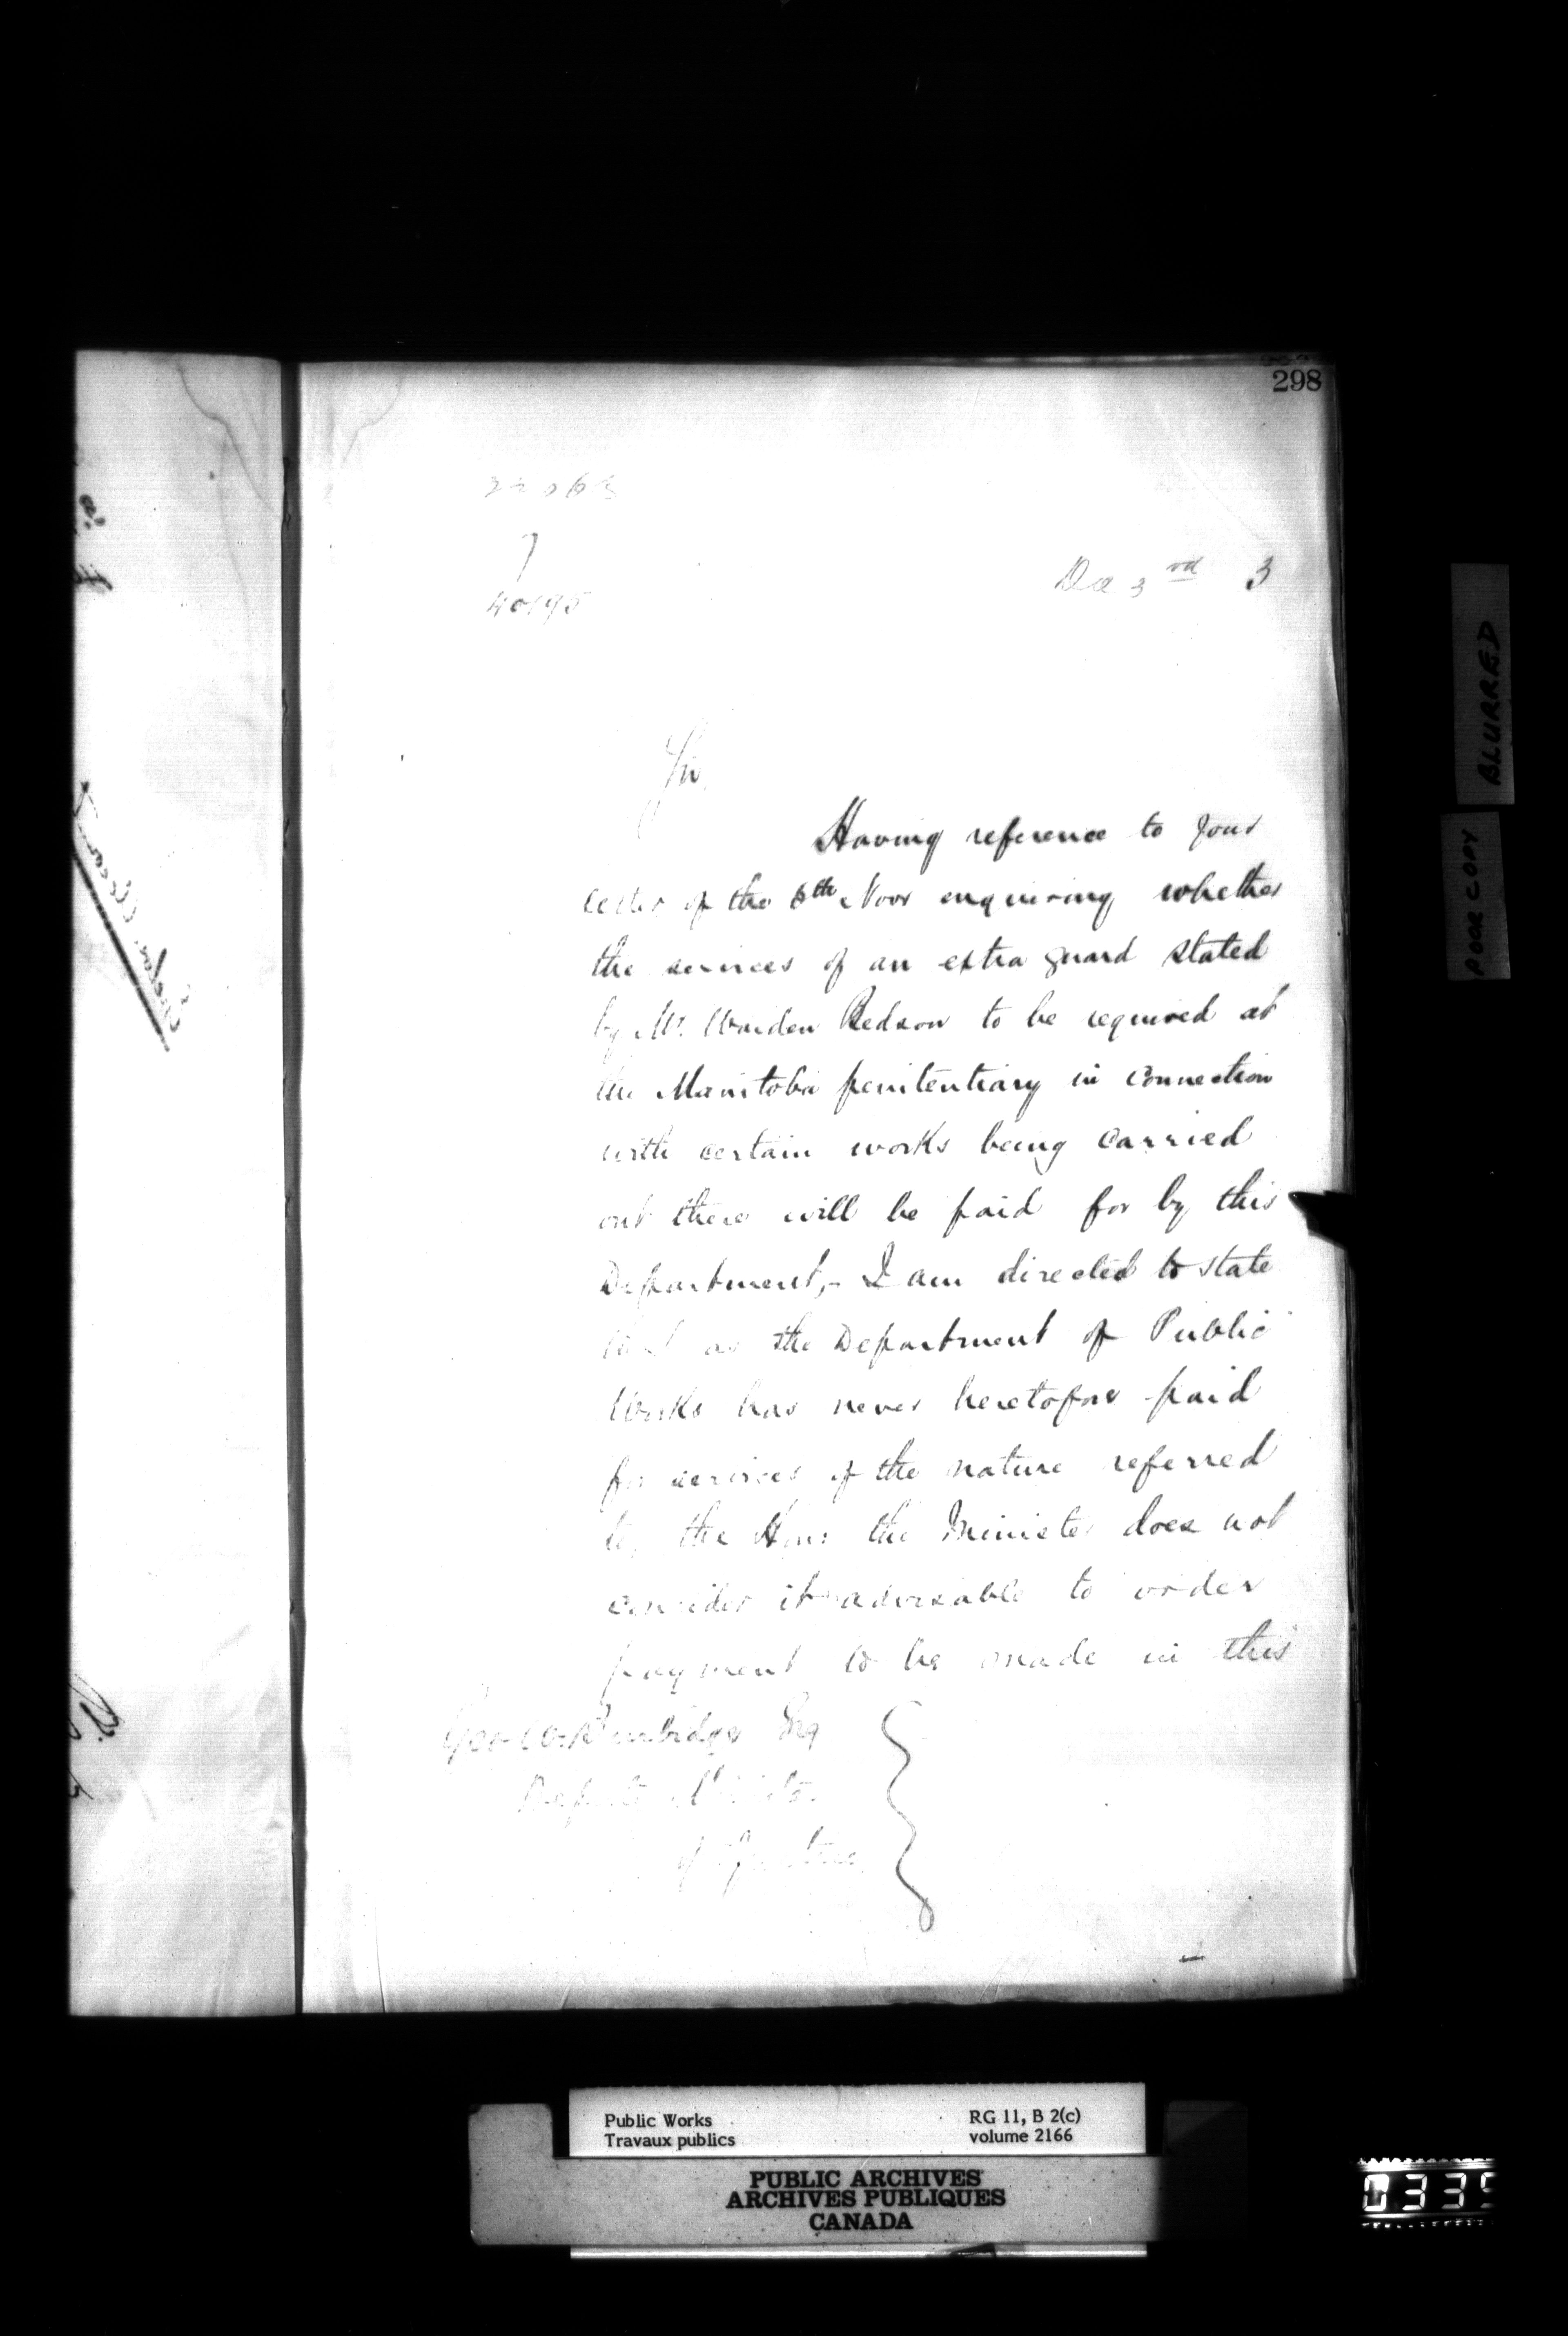 298
22063
7
40195
Dec 3rd 3
Sir,
Having reference to your
letter of the 6th Novr enquiring whether
the services of an extra guard stated
by Mr. Warden Bedson to be required at
the Manitoba penitentiary in connection
with certain works being carried
out there will be paid for by this
Department,- I am directed to state
that as the Department of Public
Works has never heretofore paid
for services of the nature referred
to, the Hon: the Minister does not
consider it advisable to order
payment to be made in this
Geo W Burbidge Esq
Deputy Minister
of Justice
BLURRED
POOR COPY
Public Works
Travaux publics
RG 11, B 2(c)
volume 2166
PUBLIC ARCHIVES
ARCHIVES PUBLIQUES
CANADA
0335